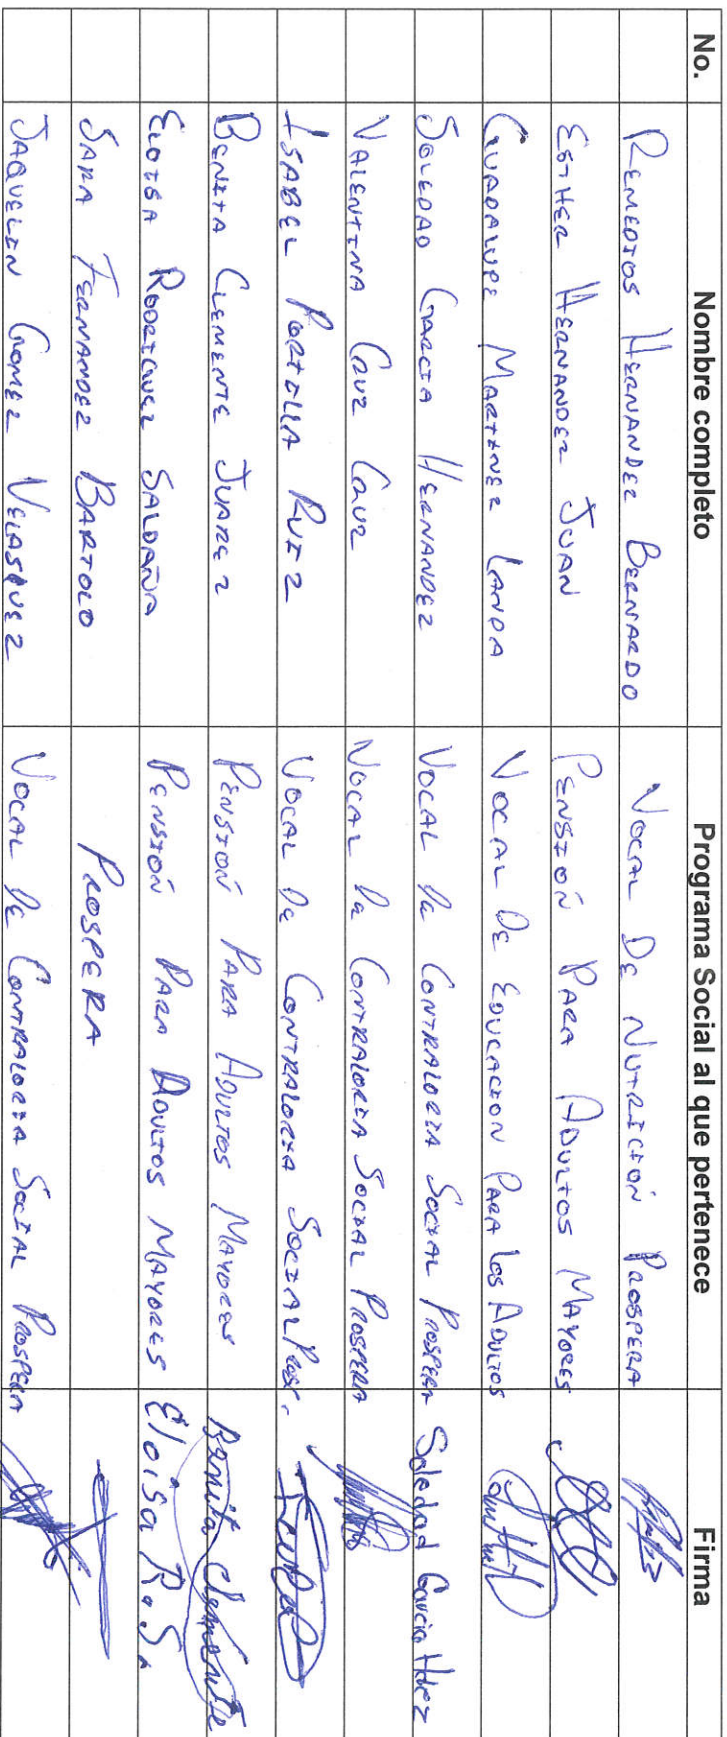 No. Nombre completo Programa Social al que pertenece Firma
REMEDIOS HERNANDEZ BERNARDO VOCAL DE NUTRICIÓN PROSPERA
ESTHER HERNANDEZ JUAN PENSIÓN PARA ADULTOS MAYORES
GUADALUPE MARTINEZ LANDA VOCAL DE EDUCACION PARA LOS ADULTOS
SOLEDAD GARCIA HERNANDEZ VOCAL DE CONTRALORIA SOCIAL PROSPERA Soledad Garcia Hdez
VALENTINA CRUZ CRUZ VOCAL DE CONTRALORIA SOCIAL PROSPERA
ISABEL PORTILLA RUIZ VOCAL DE CONTRALORIA SOCIAL PROSP.
BENITA CLEMENTE JUAREZ PENSIÓN PARA ADULTOS MAYORES Benita Clemente
ELOISA RODRIGUEZ SALDAÑA PENSIÓN PARA ADULTOS MAYORES Eloisa R. S.
SARA FERNANDEZ BARTOLO PROSPERA
JAQUELIN GOMEZ VELASQUEZ VOCAL DE CONTRALORIA SOCIAL PROSPERA